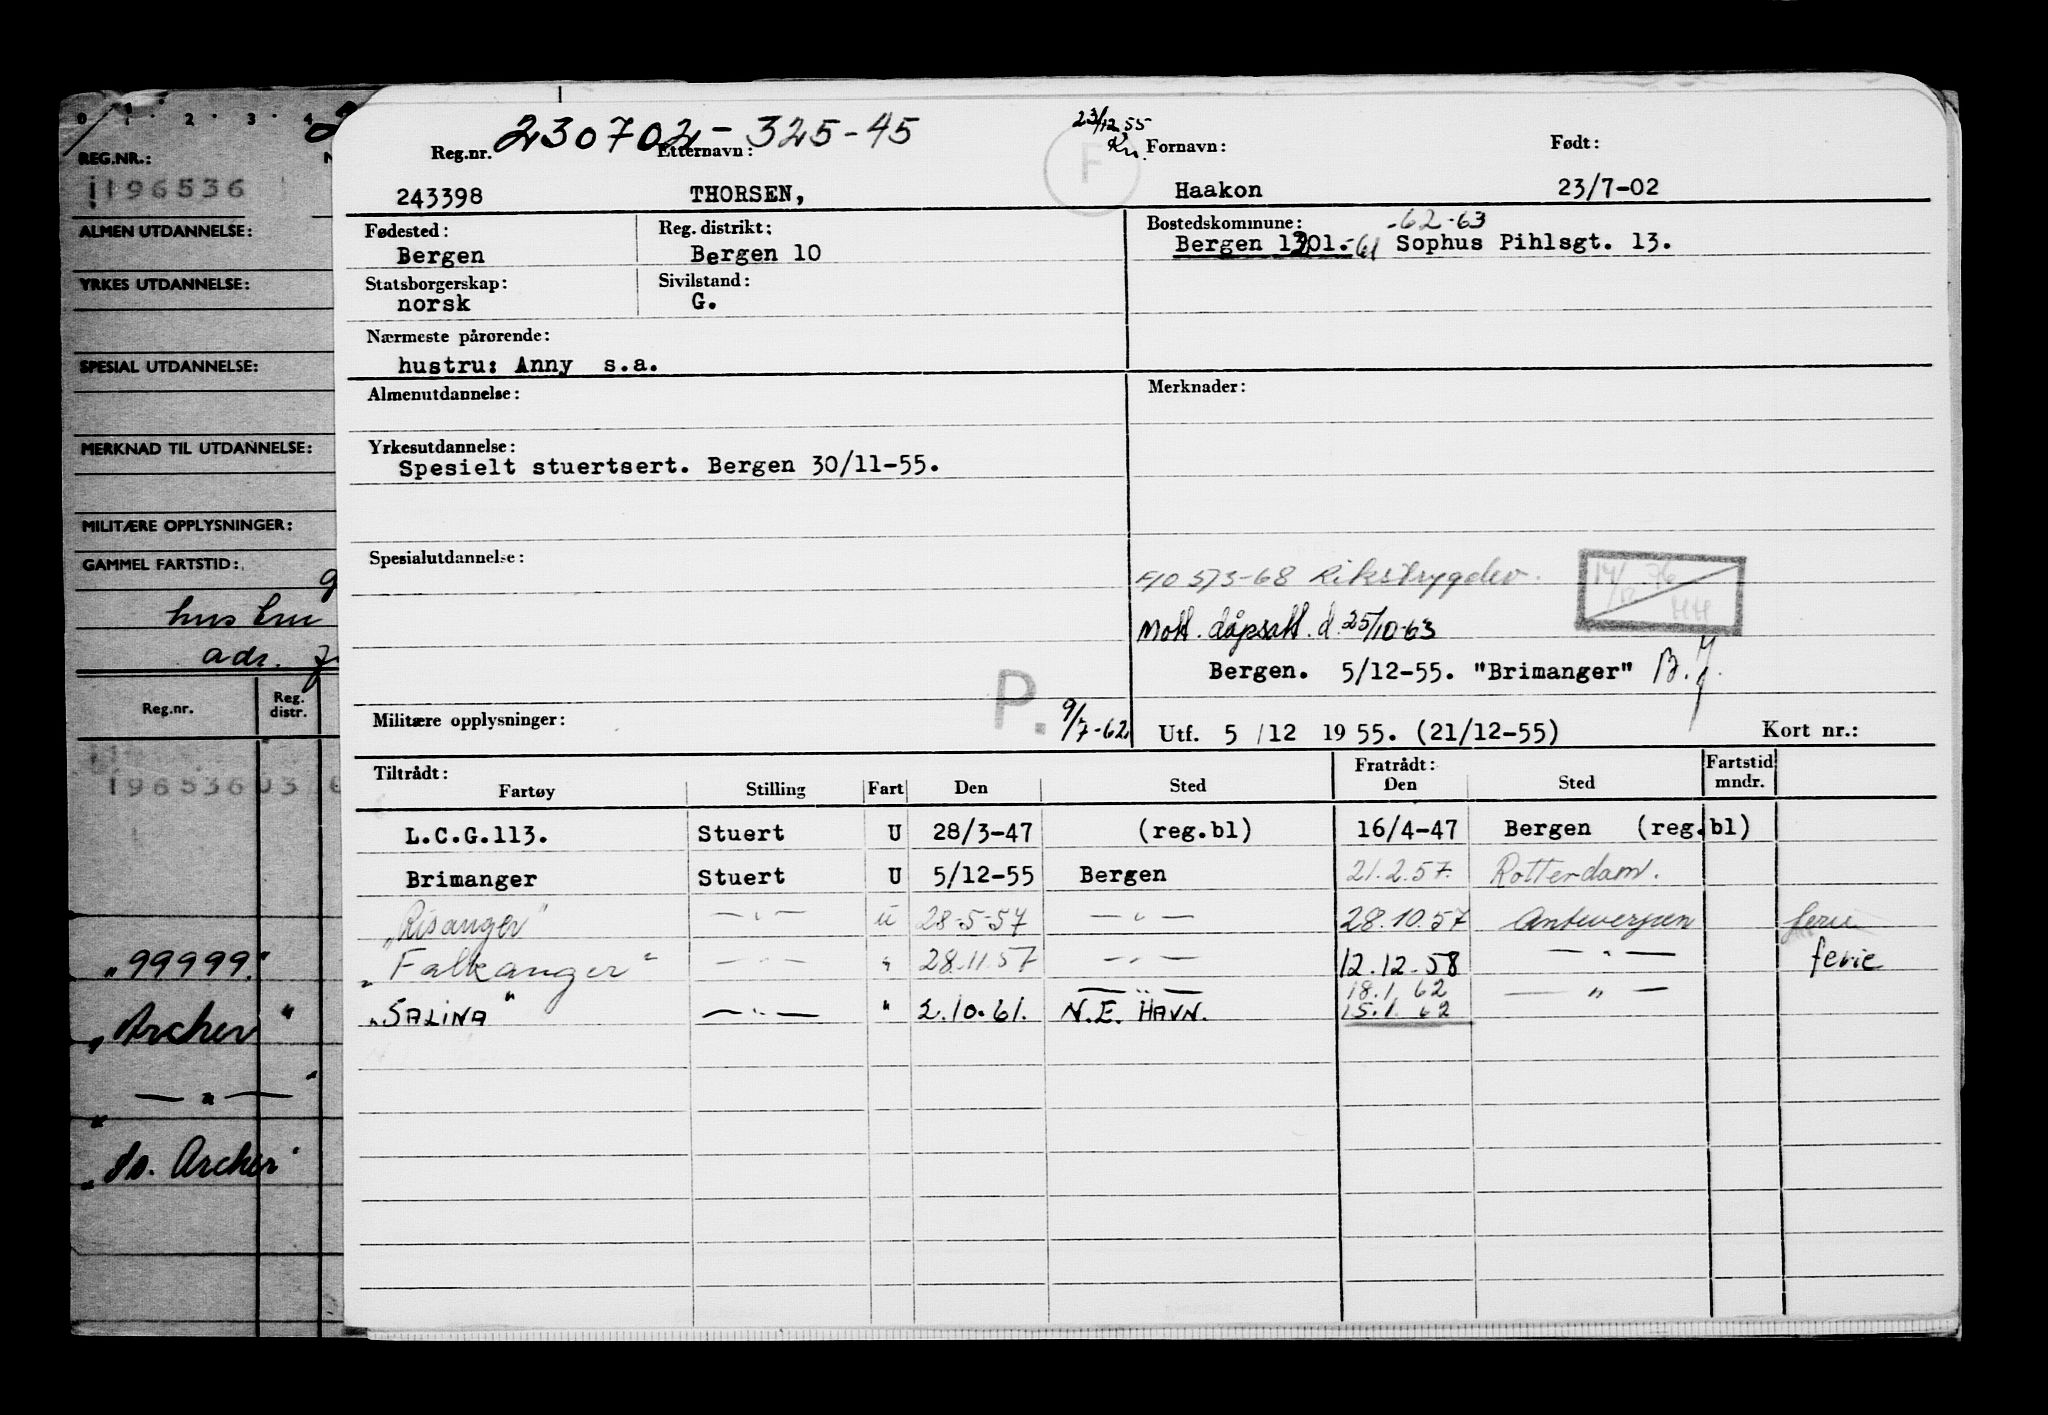 0 1 2 3 4
REG.NR.:
196536
ALMEN UTDANNELSE:
YRKES UTDANNELSE:
SPESIAL UTDANNELSE:
MERKNAD TIL UTDANNELSE:
MILITÆRE OPPLYSNINGER:
GAMMEL FARTSTID:
hustru
adr.
Reg.nr. Reg. distr.
19653603
"99999"
"Archer"
" — " — "
" Archer"
230702-325-45
23/12 55
Kn.
F
Reg.nr. Etternavn: Fornavn: Født:
243398 THORSEN, Haakon 23/7-02
Fødested: Reg. distrikt: Bostedskommune: -62-63
Bergen Bergen 10 Bergen 1301.-61 Sophus Pihlsgt. 13.
Statsborgerskap: Sivilstand:
norsk G.
Nærmeste pårørende:
hustru: Anny s.a.
Almenutdannelse: Merknader:
Yrkesutdannelse:
Spesielt stuertsert. Bergen 30/11-55.
Spesialutdannelse:
573-68 Rikstrygdev.
14/12 76
HH
Mott. dåpsatt. d. 25/10-63
Bergen. 5/12-55. "Brimanger" B.J.
P.
Militære opplysninger: 9/7-62 Utf. 5 /12 1955. (21/12-55) Kort nr.:
Tiltrådt: Fratrådt: Fartstid
Fartøy Stilling Fart Den Sted Den Sted mndr.
L.C.G.113. Stuert U 28/3-47 (reg.bl) 16/4-47 Bergen (reg.bl)
Brimanger Stuert U 5/12-55 Bergen 21.2.57. Rotterdam.
"Risanger" — " — u 28-5-57 — " — 28.10.57 Antwerpen ferie
"Falkanger" — " — " 28.11.57 — " — 12.12.58 — " — ferie
— " — 18.1 62 — " —
"SALINA" — " — " 2.10.61. N.E. HAVN. 15.1.62